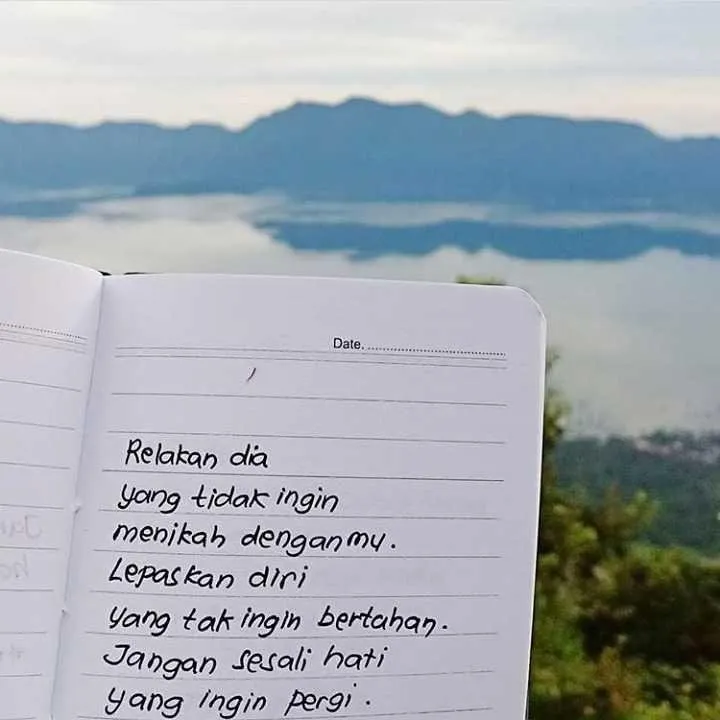 Date.
Relakan dia
yang tidak ingin
menikah denganmu.
Lepaskan diri
yang tak ingin bertahan.
Jangan sesali hati
yang ingin pergi.